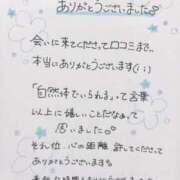 ありがとうございました
会いに来てくださって口コミまで、
本当にありがとうございます(;;)
「自然体でいられる」って言葉
以上に嬉しいことだなって
思いました
それくらい心の距離許してくださって
ありがとうございます